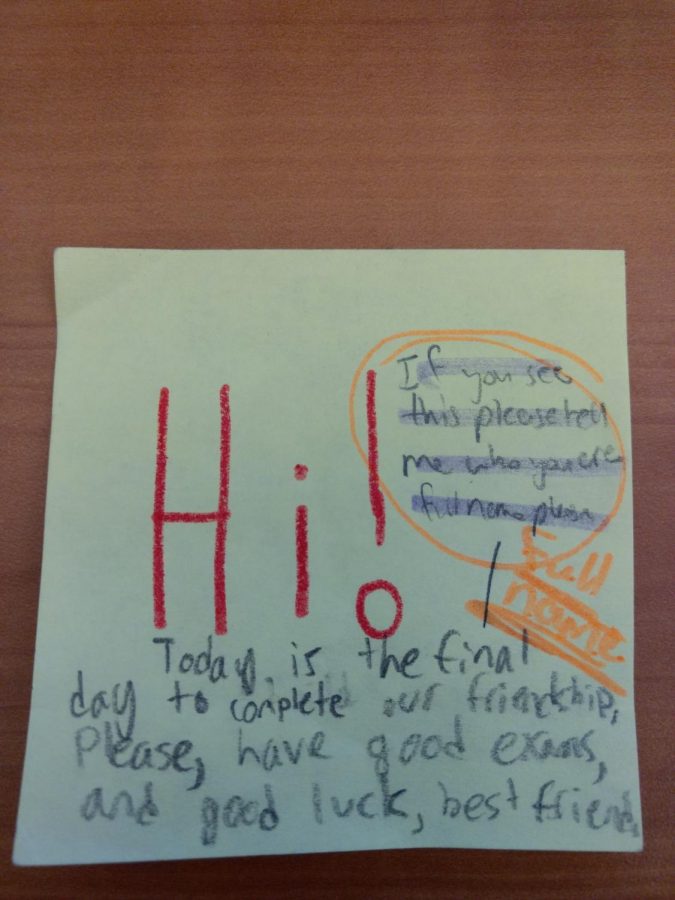 Hi!
If you see
this please tell
me who you are
full name please
Full
name
Today, is the final
day to complete our friendship,
Please, have good exams,
and good luck, best friend.